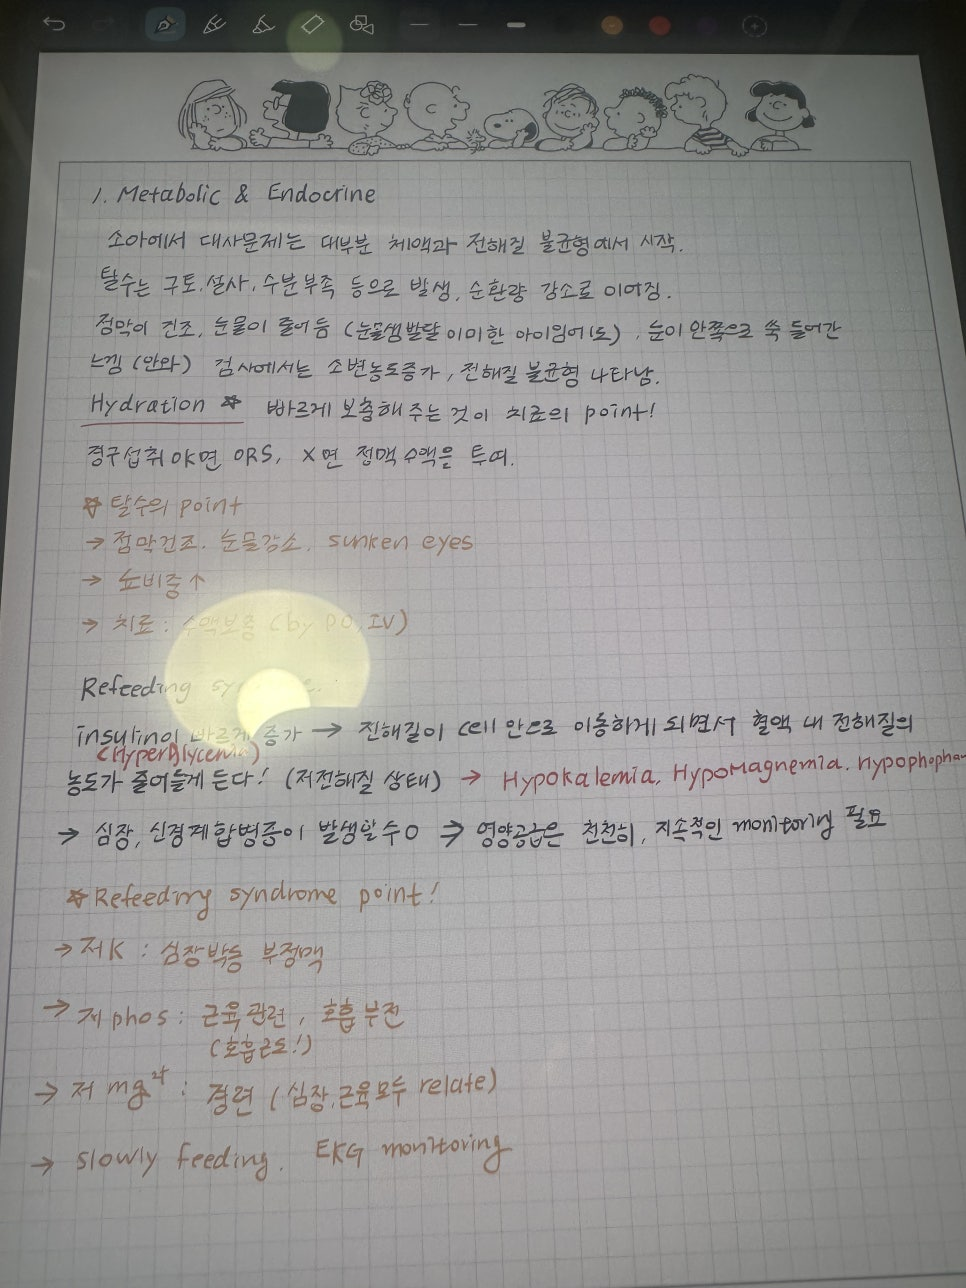 1. Metabolic & Endocrine
소아에서 대사문제는 대부분 체액과 전해질 불균형에서 시작.
탈수는 구토, 설사, 수분부족 등으로 발생, 순환량 감소로 이어짐.
점막이 건조, 눈물이 줄어듬 (눈물샘발달이 미미한 아이일어도), 눈이 안쪽으로 쑥 들어간
느낌 (안와) 검사에서는 소변농도증가, 전해질 불균형 나타남.
Hydration ☆ 빠르게 보충해 주는 것이 치료의 point!
경구섭취 OK면 ORS, X면 정맥수액을 투여.
☆ 탈수의 point
→ 점막건조, 눈물감소, sunken eyes
→ 뇨비중↑
→ 치료: 수액보충 (by PO, IV)
Refeeding syndrome.
insulin이 빠르게 증가 → 전해질이 cell 안으로 이동하게 되면서 혈액 내 전해질의
(HyperGlycemia)
농도가 줄어들게 든다! (저전해질 상태) → Hypokalemia, HypoMagnemia, Hypophopha
→ 심장, 신경계합병증이 발생할수O ⇒ 영양공급은 천천히, 지속적인 monitoring 필요
☆ Refeeding syndrome point!
→ 저K : 심장박동 부정맥
→ 저phos : 근육관련, 호흡부전
(호흡근도!)
→ 저 mg²⁺ : 경련 (심장,근육모두 relate)
→ slowly feeding, EKG monitoring